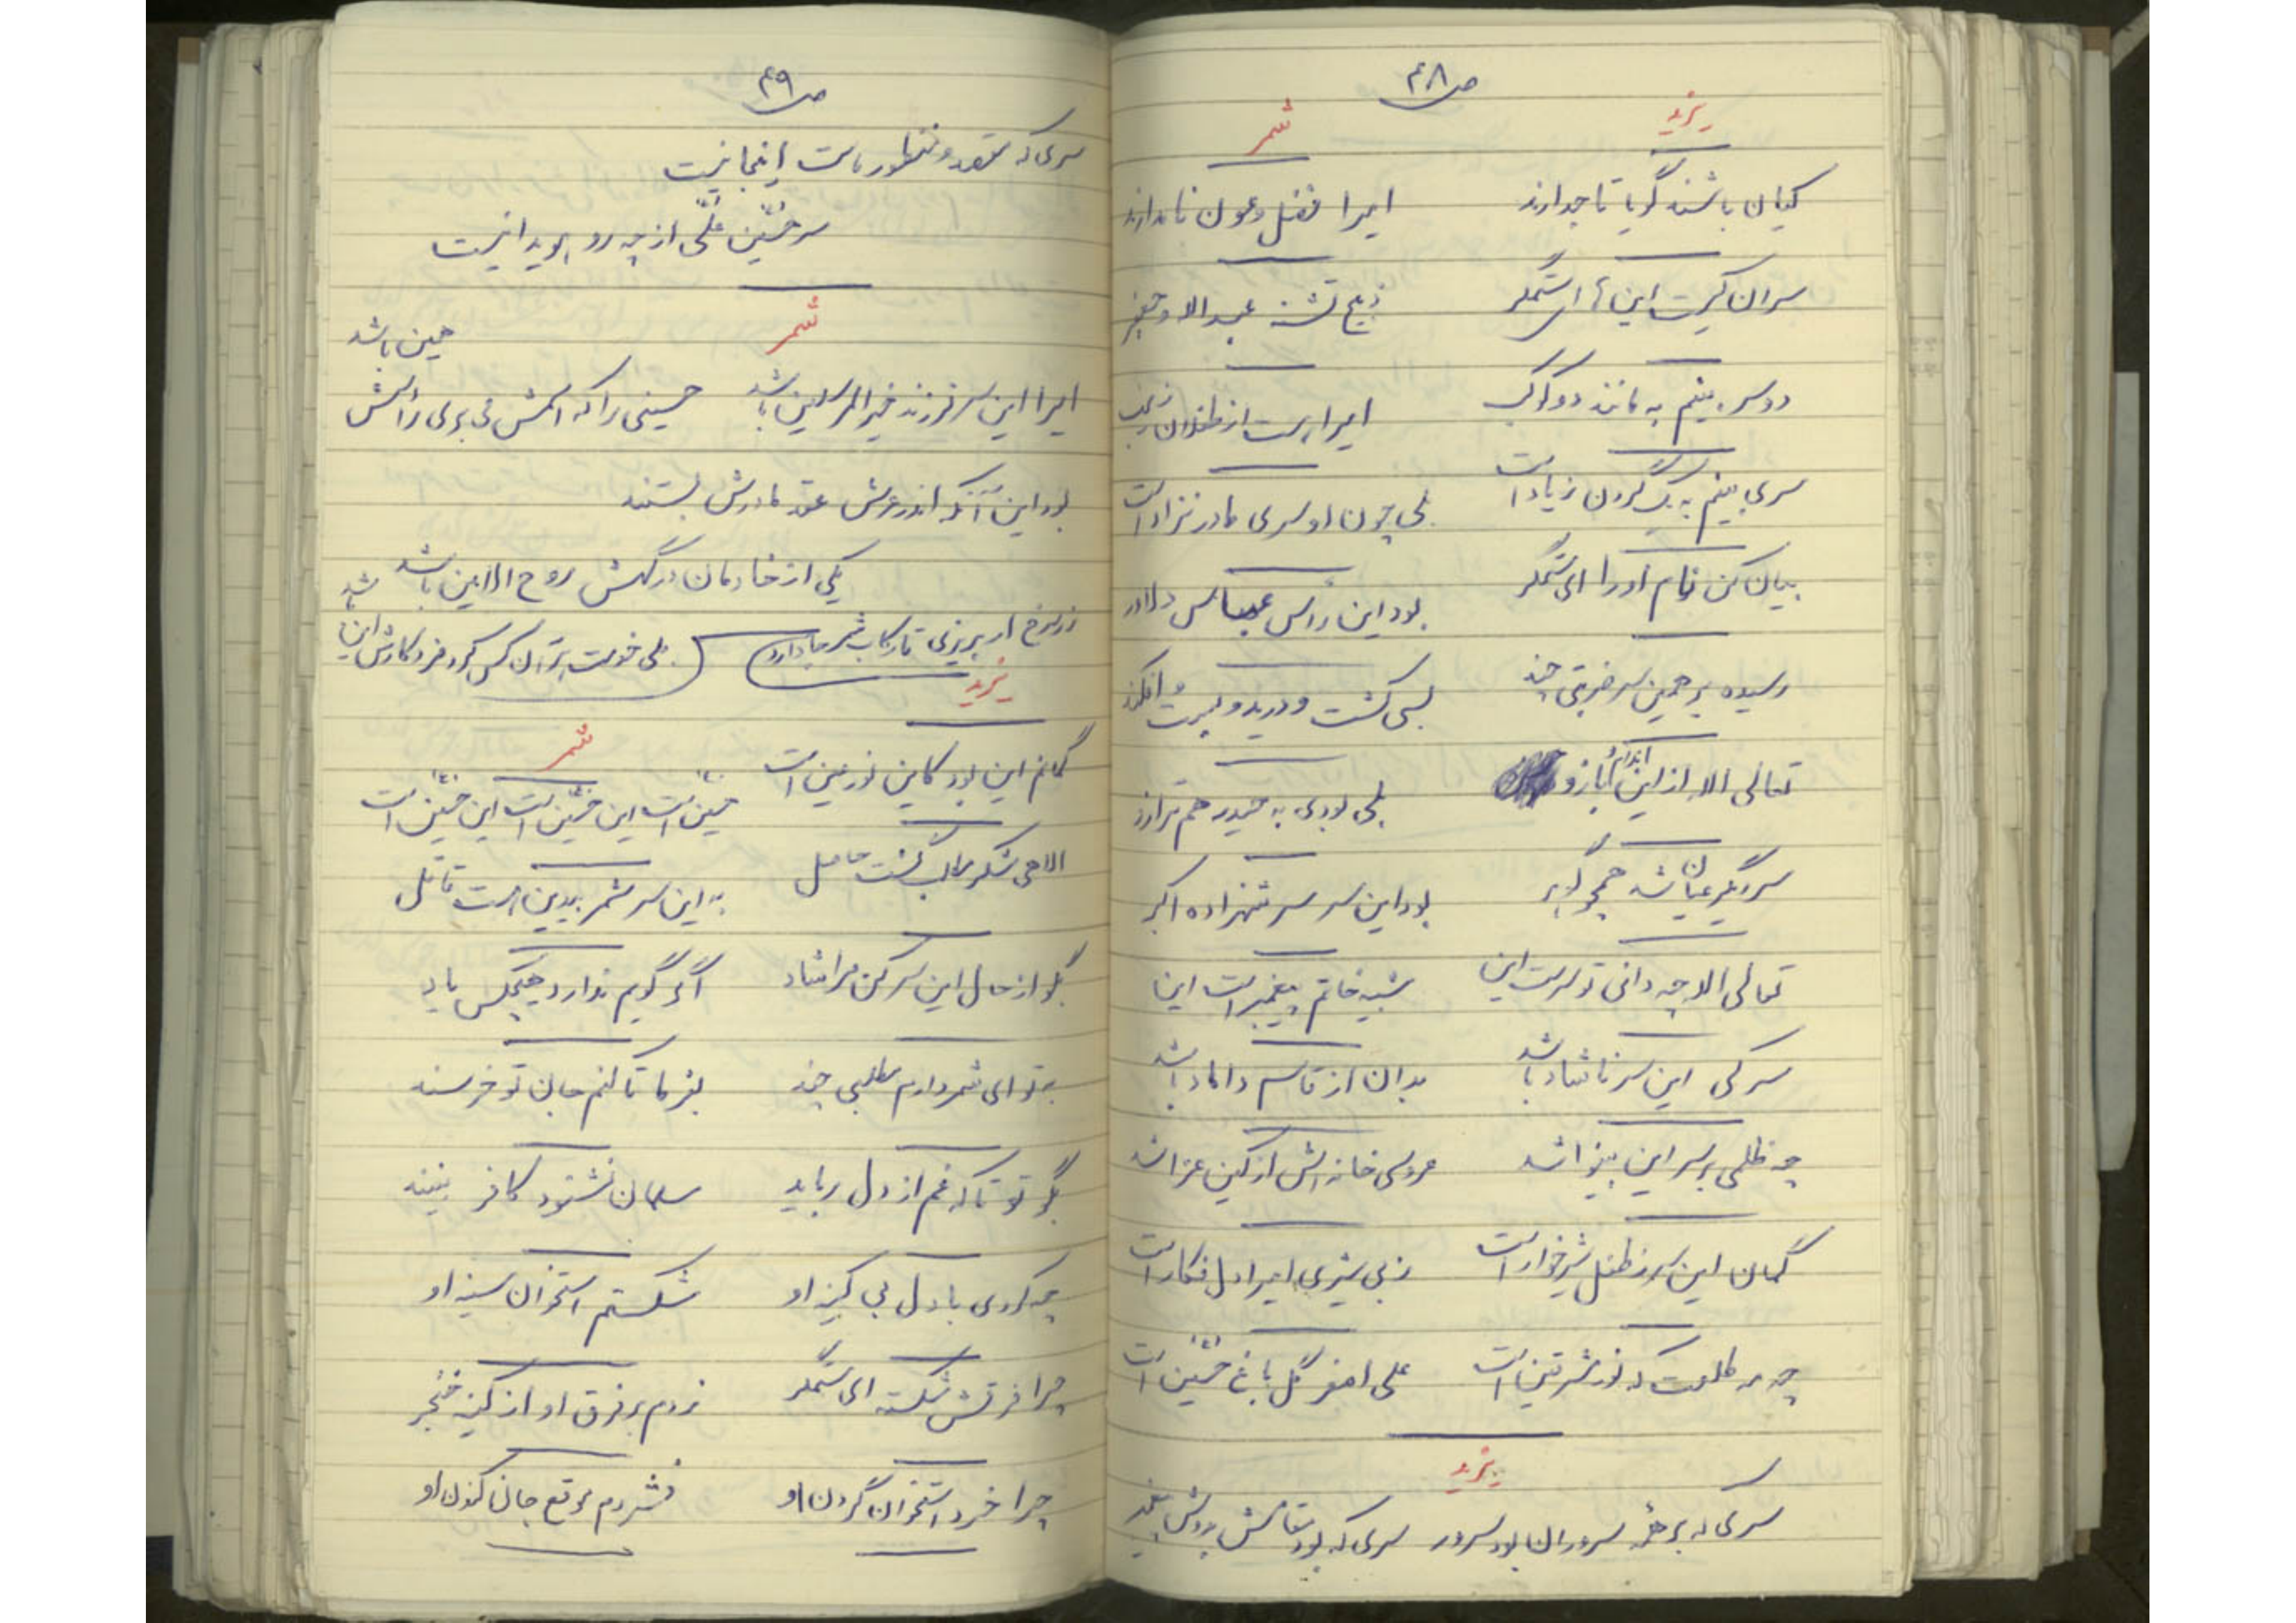 ص ۴۸
یزید
شمر
کیان باشند گویا تاجدارند امیرا فضل و عون نامدارند
سران کیست این ای ستمگر ذبیح تشنه عبدالله و جعفر
دو سر بینم به مانند دو کوکب امیرا هست از طفلان زینب
سری بینم به یک گردن زیاد است بلی چون او سری مادر نزاد است
بیان کن نام او را ای ستمگر بود این رأس عباس دلاور
رسیده بر همین سر ضربتی چند بسی کشت و درید و بست و افکند
تعالی الله از این اندام و بازو بلی بودی به حیدر هم ترازو
سر دیگر عیان شد همچو گوهر بود این سر سر شهزاده اکبر
تعالی الله چه دانی تو سر است این شبیه خاتم پیغمبر است این
سر کی این سر ناشاد باشد بدان از قاسم داماد باشد
چه ظلمی بر سر این بینوا شد عروسی خانه اش از کین عزا شد
گمان این سر ز طفل شیرخوار است ز بی شیری امیرا دل فکار است
چه مه طلعت که نور مشرقین است علی اصغر گل باغ حسین است
یزید
سری که بر همه سروران بود سرور سری که بود مقامش بدوش پیغمبر
ص ۴۹
سری که مقصد و منظور ماست اینجا نیست
سر حسین علی از چه رو هویدا نیست
شمر
امیرا این سر فرزند خیرالمرسلین باشد حسینی را که امتش می بری رأسش همین باشد
بود این آنکه اندر عرش عقد مادرش بستند
یکی از خادمان درگهش روح الامین باشد
زر سرخ ار بریزی تا رکاب شمر جا دارد ولی خدمت بتر آن کس کرد مزد کارش این باشد
یزید
گمانم این بود کاین نور عین است
شمر
حسین است این حسین است این حسین است
الاهی شکر مطلب گشت حاصل به این سر شمر بیدین است قاتل
بگو از حال این سر کن مرا شاد اگر گویم ندارد هیچکس یاد
به تو ای شمر دارم مطلبی چند بفرما تا کنم جان تو خرسند
بگو تو تا که غم از دل رباید مسلمان نشنود کافر نبیند
چه کردی با دل بی کینه او شکستم استخوان سینه او
چرا فرقش شکسته ای ستمگر زدم بر فرق او از کینه خنجر
چرا خرد استخوان گردن او فشردم موقع جان کندن او